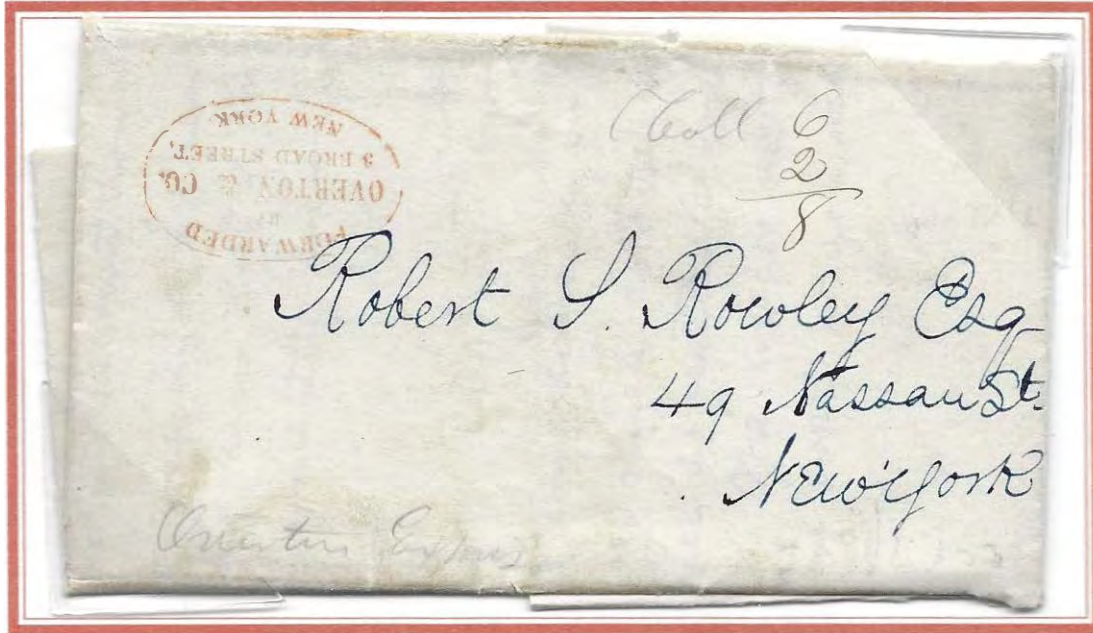 FORWARDED
BY
OVERTON & CO.
3 BROAD STREET,
NEW YORK
Coll 6
2
8
Robert S. Rowley Esq
49 Nassau St.
New York
Overton Express